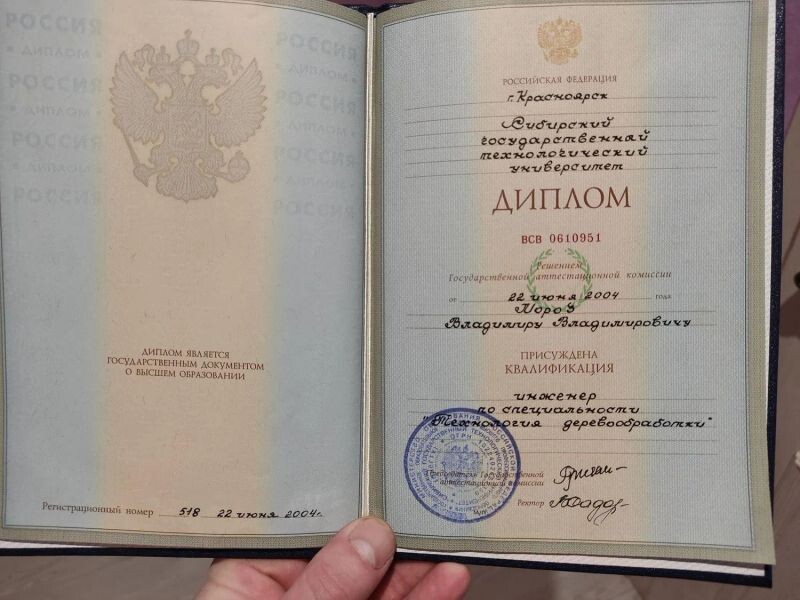 РОССИЯ
ДИПЛОМ
РОССИЯ
ДИПЛОМ
РОССИЯ
ДИПЛОМ
РОССИЯ
РОССИЯ
ДИПЛОМ
РОССИЯ
ДИПЛОМ
РОССИЯ
ДИПЛОМ
РОССИЯ
ДИПЛОМ ЯВЛЯЕТСЯ
ГОСУДАРСТВЕННЫМ ДОКУМЕНТОМ
О ВЫСШЕМ ОБРАЗОВАНИИ
Регистрационный номер 518 22 июня 2004г.
РОССИЙСКАЯ ФЕДЕРАЦИЯ
г. Красноярск
Сибирский
государственный
технологический
университет
ДИПЛОМ
ВСВ 0610951
Решением
Государственной аттестационной комиссии
от 22 июня 2004 года
Мороз
Владимиру Владимировичу
ПРИСУЖДЕНА
КВАЛИФИКАЦИЯ
инженер
по специальности
"Технология деревообработки"
Председатель Государственной
аттестационной комиссии
Ректор